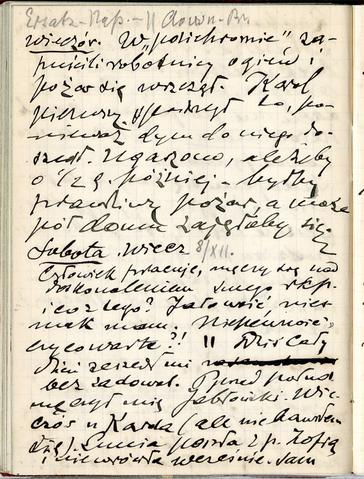 wieczór. W „polichromie" za-
puścili robotnicy ogień i
pożar się wszczął. Karol
pierwszy spostrzegł to, po-
nieważ dym do niego do-
szedł. Ugaszono, ale żeby
o 1/2 g. później – byłby
prawdziwy pożar, a może
pół domu zajęłaby się.
Sobota. wiecz 8/XII.
Człowiek pracuje, męczy się nad
doskonaleniem swego
i co z tego? Jałowość, nies-
mak mam. Niepewność,
czy co warte?! || Dziś cały
dzień zeszedł mi
bez zadowol. Przed połud.
męczył mię Jabłoński. Wie-
czór u Karola (ale nie bawiłem
się). Lunia poszła z p. Zofią
i niewróciła wcześnie. Sam